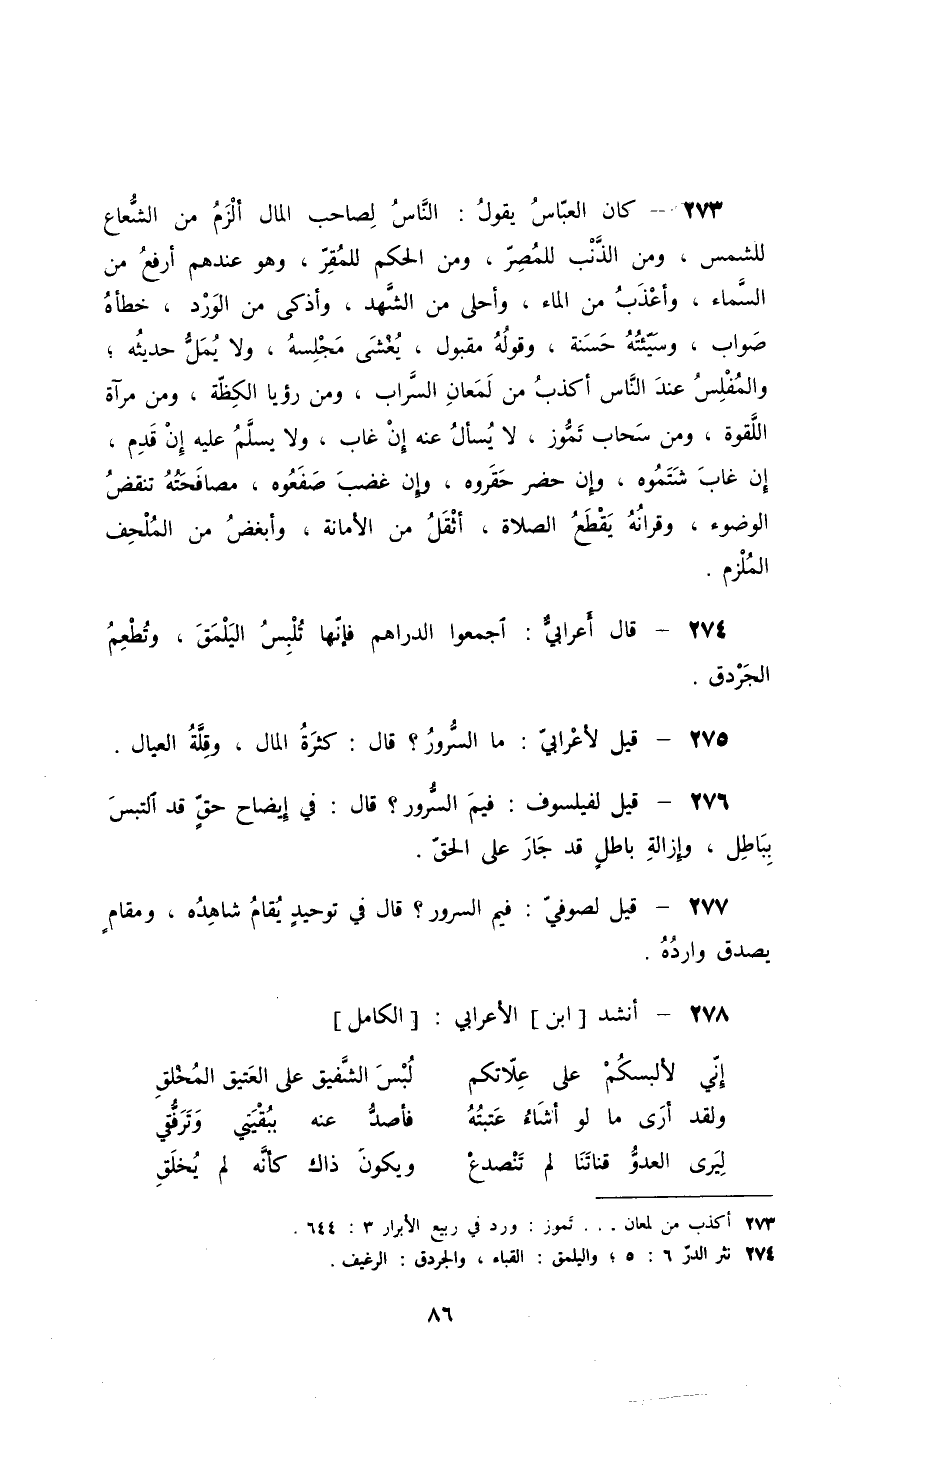 ٢٧٣ -- كان العبّاسُ يقولُ : النَّاسُ لِصاحب المال ألْزَمُ من الشُّعاع
للشمس ، ومن الذَّنْب للمُصِرّ ، ومن الحكم للمُقِرّ ، وهو عندهم أرفعُ من
السَّماء ، وأعْذَبُ من الماء ، وأحلى من الشَّهد ، وأذكى من الوَرْد ، خطأهُ
صَواب ، وسَيّئتُهُ حَسَنة ، وقولُهُ مقبول ، يُغْشَى مَجْلِسهُ ، ولا يُمَلُّ حديثُه ؛
والمُفْلِسُ عندَ النَّاس أكذبُ من لَمَعانِ السَّراب ، ومن رؤيا الكِظّة ، ومن مرآة
اللَّقوة ، ومن سَحاب تَمُّوز ، لا يُسألُ عنه إنْ غاب ، ولا يسلَّمُ عليه إنْ قَدِم ،
إن غابَ شَتَمُوه ، وإن حضر حَقَروه ، وإن غضبَ صَفَعُوه ، مصافَحَتُهُ تنقضُ
الوضوء ، وقرانُهُ يَقْطَعُ الصلاة ، أثْقَلُ من الأمانة ، وأبغضُ من المُلْحِف
المُلْزم .
٢٧٤ – قال أَعرابيٌّ : ٱجمعوا الدراهم فإنّها تُلْبِسُ اليَلْمَقَ ، وتُطْعِمُ
الجَرْدق .
٢٧٥ – قيل لأعْرابيّ : ما السُّرورُ ؟ قال : كثرَةُ المال ، وقِلَّةُ العيال .
٢٧٦ – قيل لفيلسوف : فيمَ السُّرور ؟ قال : في إيضاح حقٍّ قد ٱلتبسَ
بِبَاطِل ، وإزالةِ باطلٍ قد جَارَ على الحقّ .
٢٧٧ – قيل لصوفيّ : فيم السرور ؟ قال في توحيدٍ يُقامُ شاهِدُه ، ومقامٍ
يصدق واردُهُ .
٢٧٨ – أنشد [ ابن ] الأعرابي : [ الكامل ]
إنّي لألبسكُمْ على عِلّاتكم لُبْسَ الشَّفيق على العَتيق المُخْلقِ
ولقد أرَى ما لو أشَاءُ عَتبتُهُ فأصدُّ عنه ببُقْيَتي وَتَرفُّقي
لِيَرى العدوُّ قناتَنَا لم تَنْصدعْ ويكونَ ذاك كأنَّه لم يُخلَقِ
٢٧٣ أكذب من لمعان . . . تموز : ورد في ربيع الأبرار ٣ : ٦٤٤ .
٢٧٤ نثر الدرّ ٦ : ٥ ؛ واليلمق : القباء ، والجردق : الرغيف .
٨٦